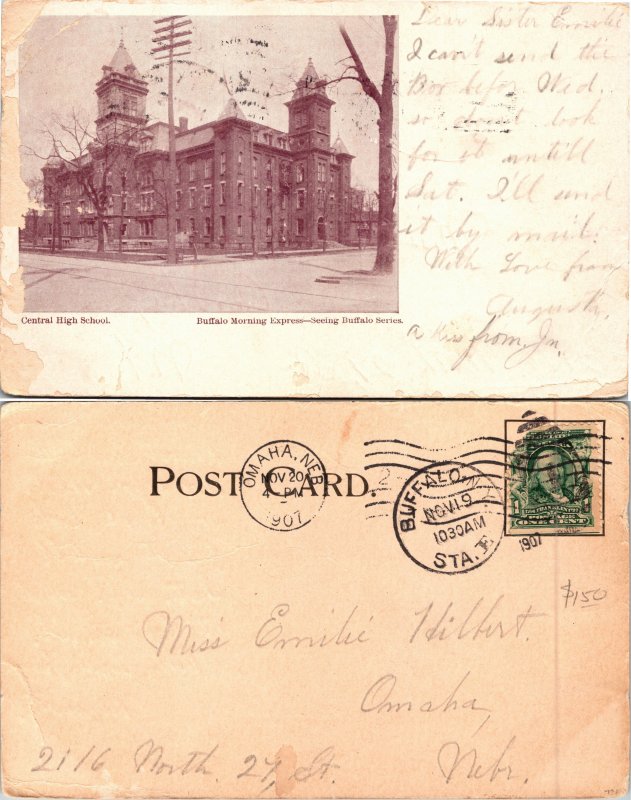 Dear Sister Emilie
I can't send the
Box before Wed.
so don't look
for it untill
Sat. I'll send
it by mail.
With Love from
Augusta.
a Kiss from Jn.
Central High School.
Buffalo Morning Express—Seeing Buffalo Series.
POST CARD.
OMAHA, NEB.
NOV 20
4 - PM
1907
BUFFALO, N.Y.
NOV 19
1030AM
STA. F.
1907
ONE CENT
$1.50
Miss Emilie Hilbert.
Omaha,
2116 North. 27, St. Nebr.